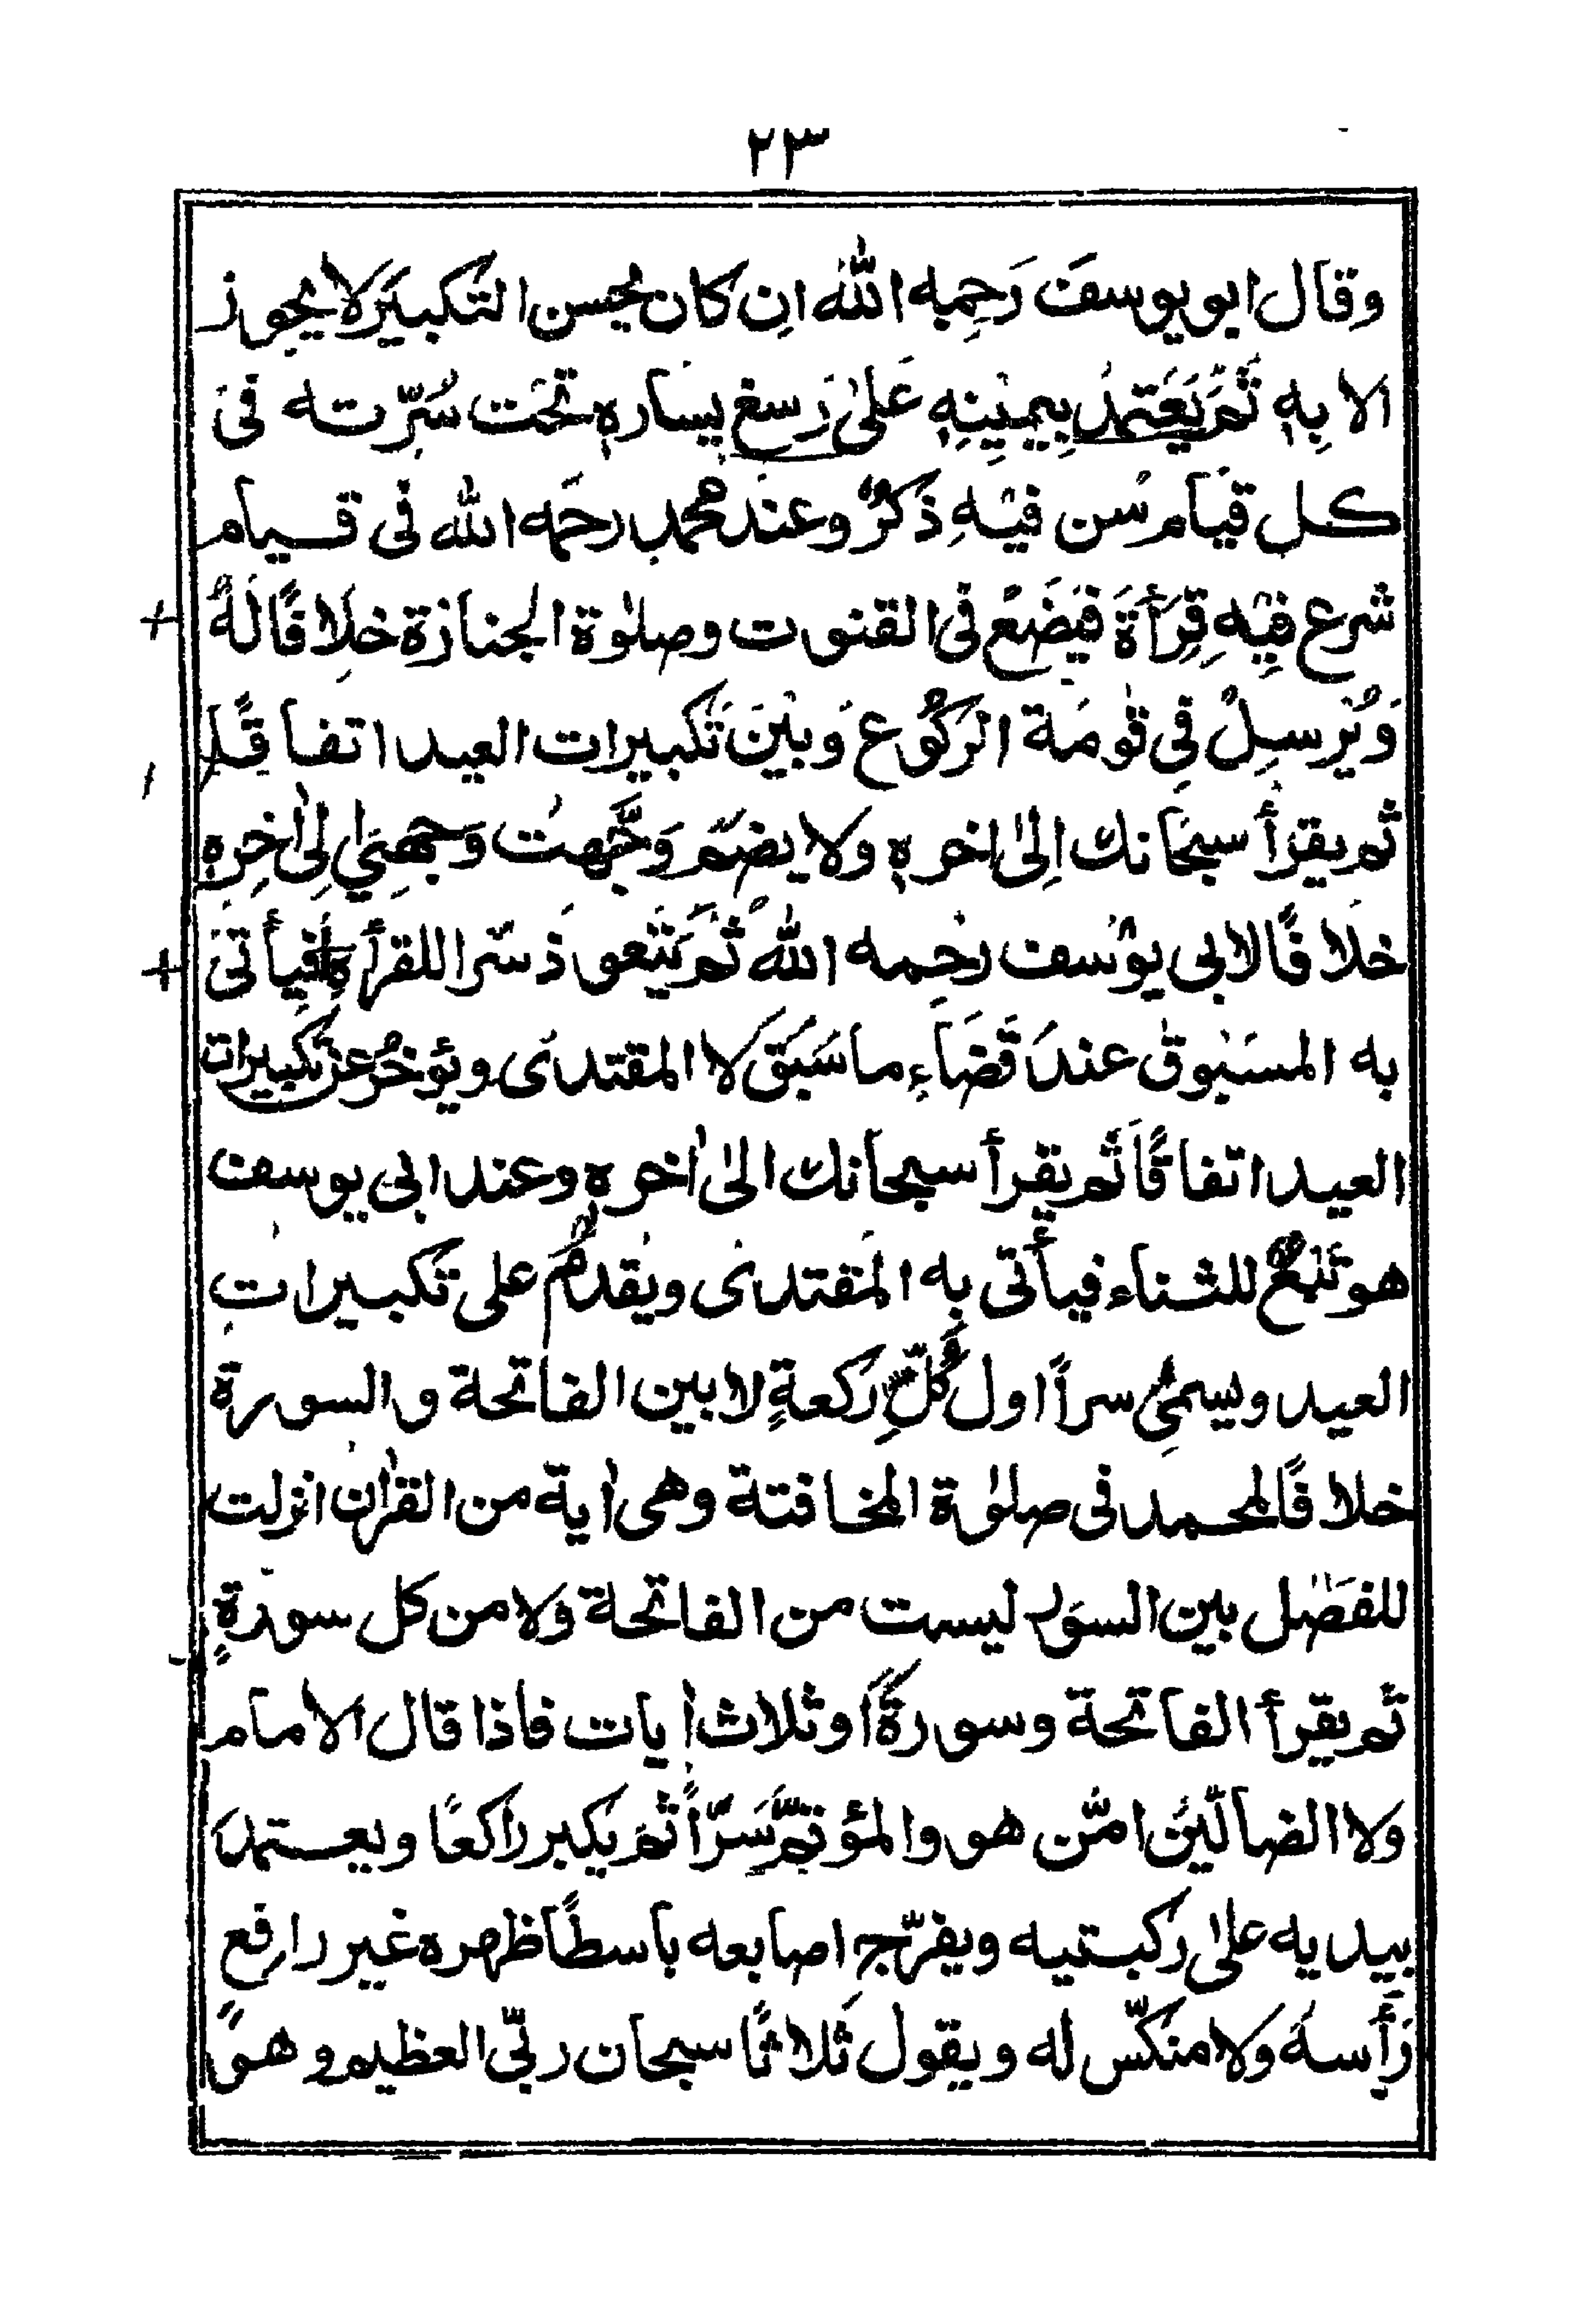 ٢٣
وقال ابو يوسف رَحِمه اللّٰه ان كان يحسن التكبير لا يجوز
الا بِهٖ ثم يَعتمدُ بِيمينِهٖ عَلىٰ رَسغ يسارهٖ تحت سُرّته فى
كل قيام سن فيه ذكرٌ وعند محمد رحمه اللّٰه فى قيام
شرع فيه قِرأةٌ فيضَعُ فى القنوت وصلٰوة الجنازة خلافًا لهٗ
وَيُرسِلُ فِى قومة الركوع وبين تكبيرات العيد اتفاقًا
ثم يقرأ سبحانك اِلىٰ اٰخرهٖ ولا يضم وَجَّهت وَجهِىَ اِلىٰ اٰخِرِهٖ
خلافًا لابى يوسف رحمه اللّٰه ثم يتعوذ سرّا للقرأة فيأتى
به المسبوق عند قضاءِ ما سَبَقَ لا المقتدى ويؤخرُ عن تكبيرات
العيد اتفاقًا ثم يقرأ سبحانك الىٰ اٰخرهٖ وعند ابى يوسف
هو تبع للثناء فيأتى به المقتدى ويقدم على تكبيرات
العيد ويسمى سراً اول كُلِّ ركعةٍ لا بين الفاتحة والسورة
خلافًا لمحمد فى صلٰوة المخافتة وهى اٰية من القراٰن انزلت
للفصل بين السور ليست من الفاتحة ولا من كل سورةٍ
ثم يقرأ الفاتحة وسورةً او ثلاث اٰيات فاذا قال الامام
ولا الضالّين امّن هو والمؤتمُّ سَرّاً ثم يكبر راكعًا ويعتمد
بيديه علىٰ ركبتيه ويفرّج اصابعه باسطًا ظهره غير رافع
رأسهٗ ولا منكّس له ويقول ثلاثًا سبحان ربّى العظيم وهو